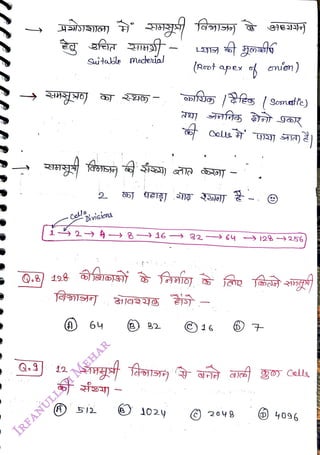 → प्रयोगशाला में समसूत्री विभाजन के अध्ययन
हेतु उचित सामग्री - प्याज की मूलशीर्ष
Suitable material (Root apex of onion)
→ समसूत्रण का स्थल - कायिक / दैहिक / Somatic)
तथा जननिक दोनो प्रकार
की Cells में पाया जाता है।
→ समसूत्री विभाजन की संख्या ज्ञात करना -
2 का पहाड़ा याद रखना है -
Cells Divisions
1 → 2 → 4 → 8 → 16 → 32 → 64 → 128 → 256
Q.8 128 कोशिकाओं के निर्माण के लिए कितने समसूत्री
विभाजन आवश्यक होंगे -
(A) 64 (B) 32 (C) 16 (D) 7
Q.9 12 समसूत्री विभाजन से बनने वाली कुल Cells
की संख्या -
(A) 512 (B) 1024 (C) 2048 (D) 4096
IRFANULLAH MEHAR